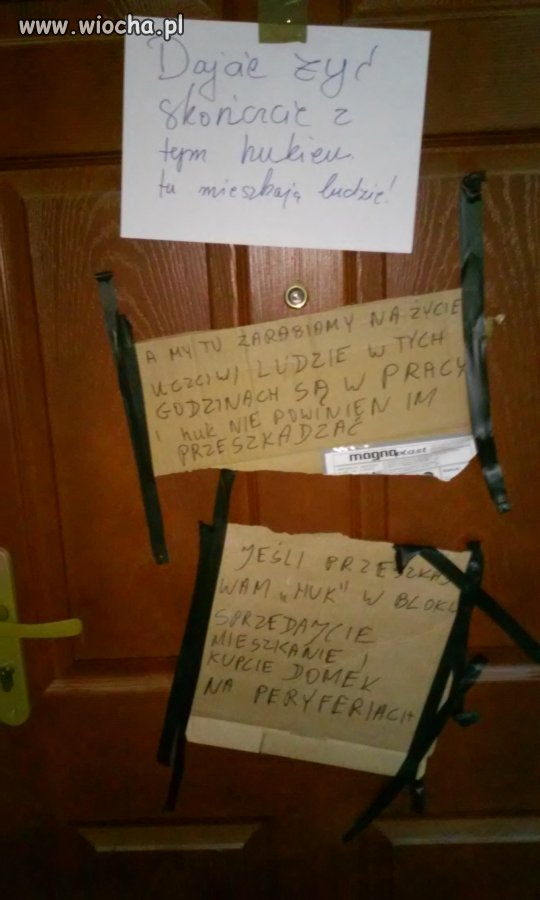 www.wiocha.pl
Dajcie żyć
skończcie z
tym hukiem.
tu mieszkają ludzie!
A MY TU ZARABIAMY NA ŻYCIE
UCZCIWI LUDZIE W TYCH
GODZINACH SĄ W PRACY
I huk NIE POWINIEN IM
PRZESZKADZAĆ
magnaplast
JEŚLI PRZESZKA
WAM „HUK" W BLOKU
SPRZEDAJCIE
MIESZKANIE I
KUPCIE DOMEK
NA PERYFERIACH